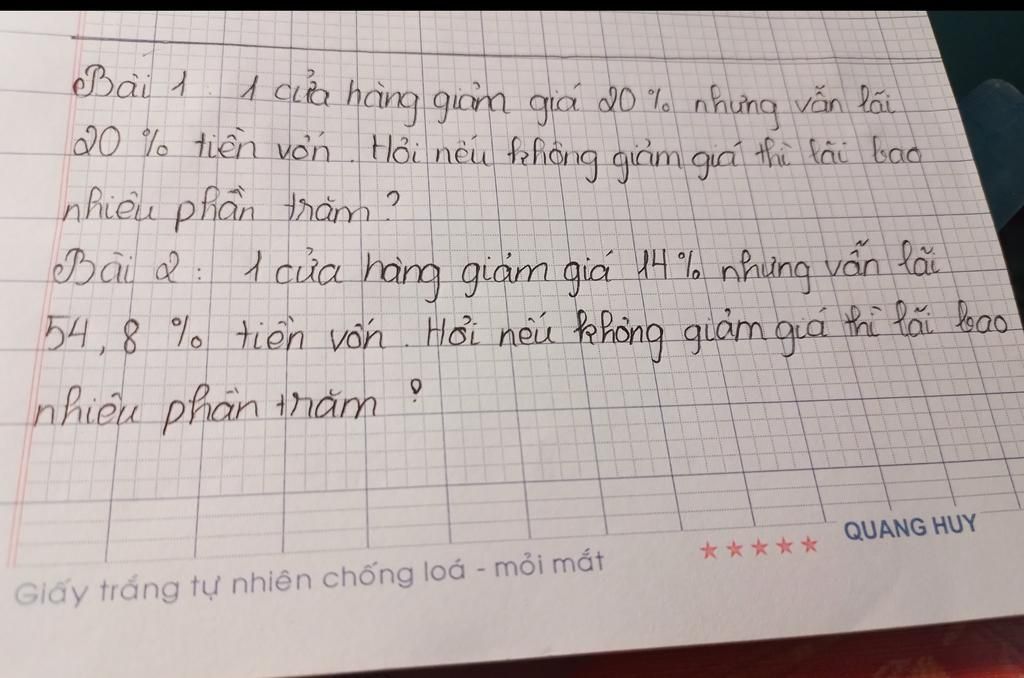 Bài 1. 1 cửa hàng giảm giá 20% nhưng vẫn lãi
20% tiền vốn. Hỏi nếu không giảm giá thì lãi bao
nhiêu phần trăm?
Bài 2: 1 cửa hàng giảm giá 14% nhưng vẫn lãi
54,8% tiền vốn. Hỏi nếu không giảm giá thì lãi bao
nhiêu phần trăm?
QUANG HUY
Giấy trắng tự nhiên chống loá - mỏi mắt